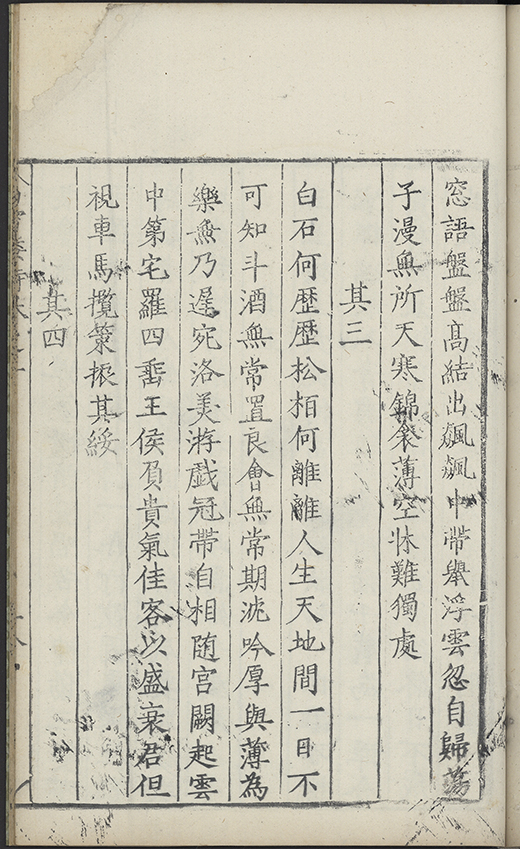 窓語盤盤髙結出飆飆中帶舉浮雲忽自歸蕩
子漫無所天寒錦衾薄空牀難獨處
其三
白石何歴歴松栢何離離人生天地間一日不
可知斗酒無常置良㑹無常期沈吟厚與薄為
樂無乃遲宛洛美游戲冠帶自相随宫闕起雲
中第宅羅四垂王侯負貴氣佳客以盛衰君但
視車馬攬策振其綏
其四